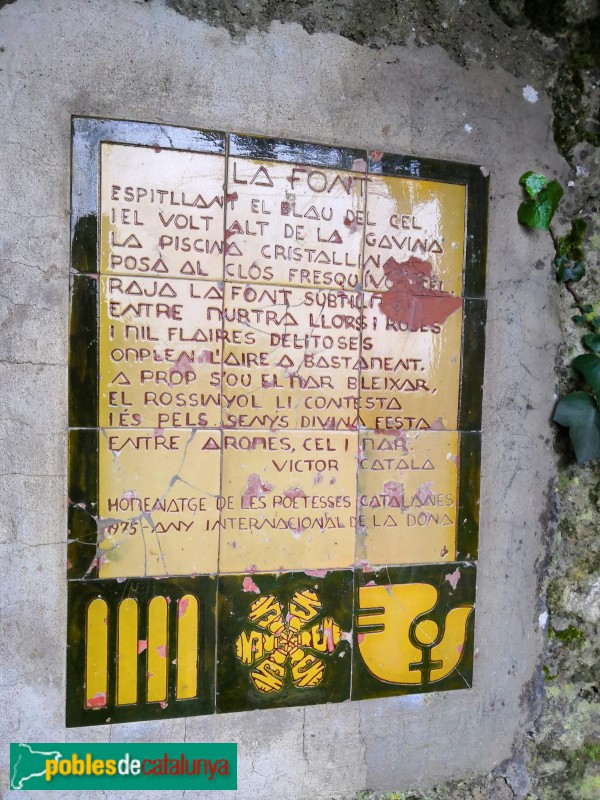 LA FONT
ESPITLLANT EL BLAU DEL CEL
I EL VOLT ALT DE LA GAVINA
LA PISCINA CRISTALLINA
POSA AL CLOS FRESQUÍVOL
RAJA LA FONT SUBTIL
ENTRE MURTRA LLORS I ROSES
I MIL FLAIRES DELITOSES
OMPLEN L'AIRE A BASTAMENT.
A PROP S'OU EL MAR BLEIXAR,
EL ROSSINYOL LI CONTESTA
I ÉS PELS SENYS DIVINA FESTA
ENTRE AROMES, CEL I MAR.
VICTOR CATALA
HOMENATGE DE LES POETESSES CATALANES
1975-ANY INTERNACIONAL DE LA DONA
poblesdecatalunya